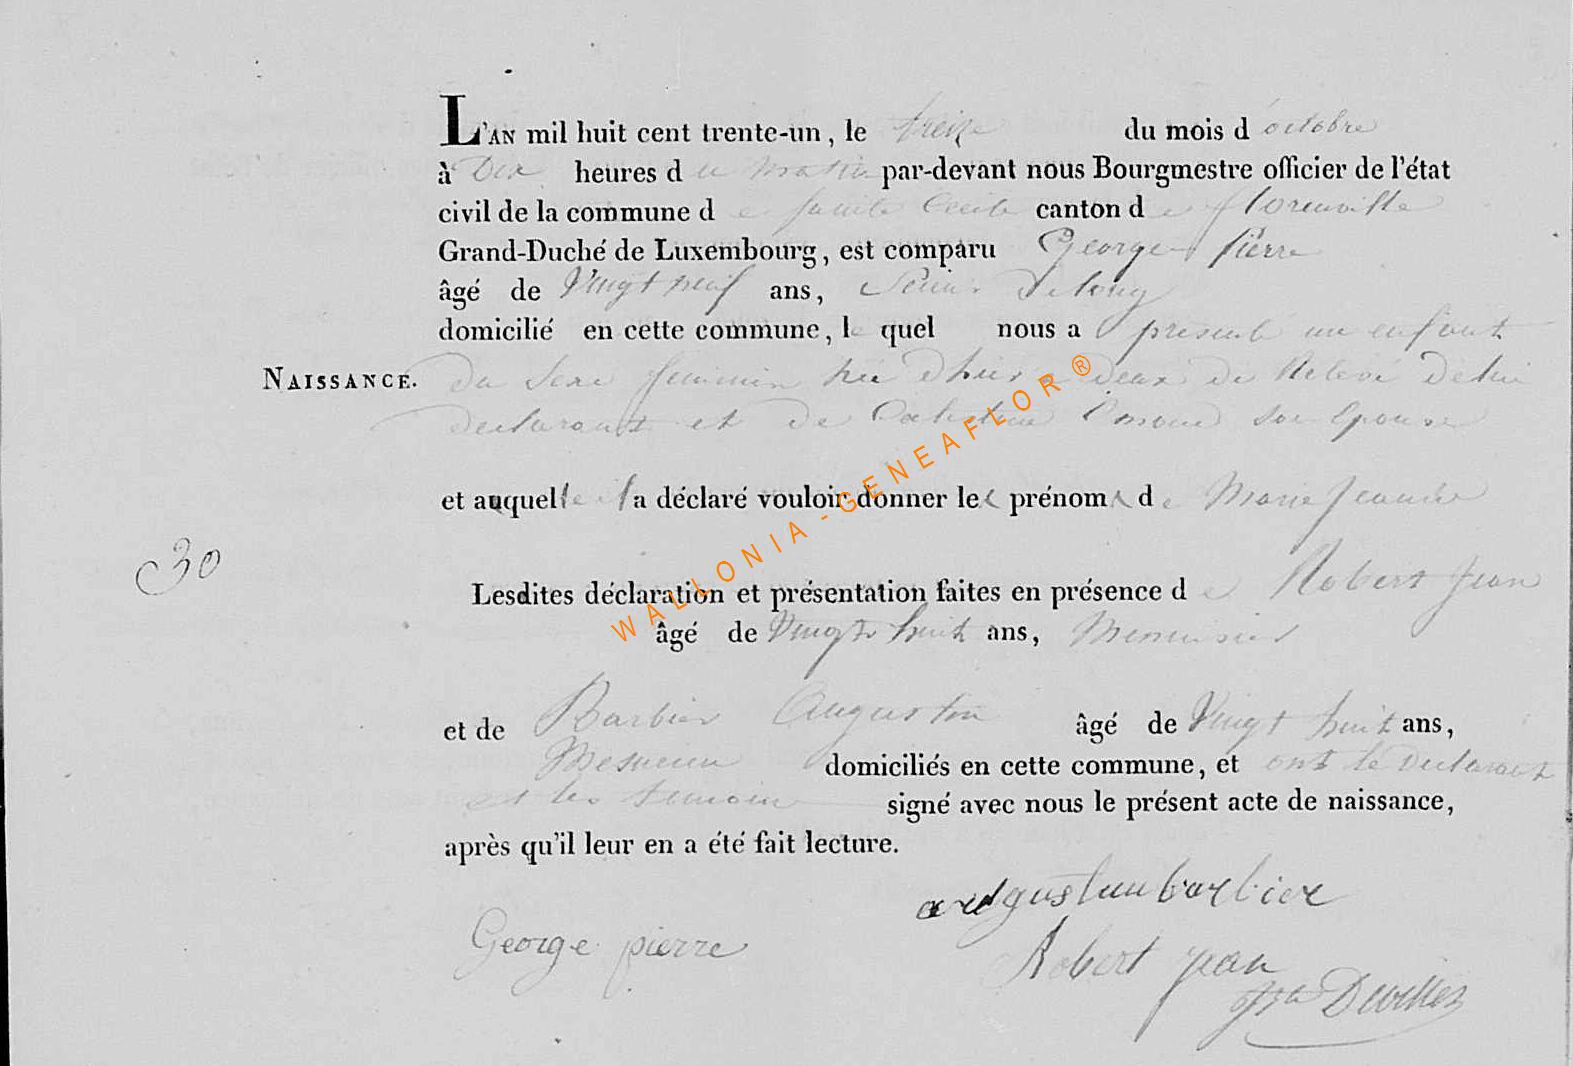 L'AN mil huit cent trente-un, le treize du mois d'octobre
à Dix heures du matin par-devant nous Bourgmestre officier de l'état
civil de la commune de Sainte Cecile canton de florenville
Grand-Duché de Luxembourg, est comparu George Pierre
âgé de Vingt neuf ans, Scieur De long
domicilié en cette commune, lequel nous a présenté un enfant
NAISSANCE. Du Sexe feminin née d'hier a deux de Relevé De lui
declarant et de son Epouse
et auquelle il a déclaré vouloir donner les prénoms de Marie Jeanne
30
Lesdites déclaration et présentation faites en présence de Robert Jean
âgé de Vingt huit ans, Menuisier
et de Barbier Augustin âgé de Vingt huit ans,
domiciliés en cette commune, et ont le Declarant
et les temoins signé avec nous le présent acte de naissance,
après qu'il leur en a été fait lecture.
augustin barbier
George pierre
Robert jean
Devillez
WALLONIA-GENEAFLOR ®